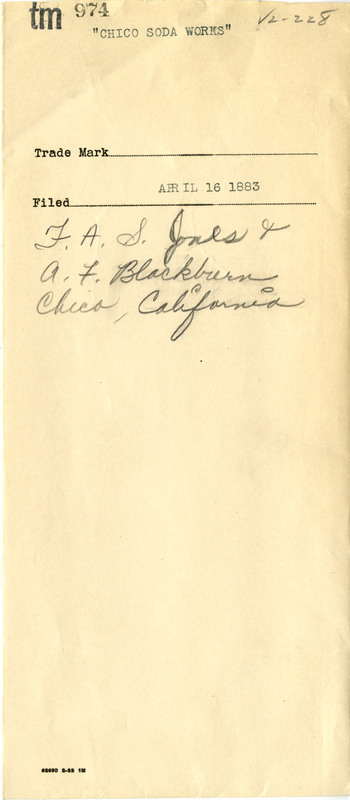 tm 974 V2-228
"CHICO SODA WORKS"
Trade Mark
APRIL 16 1883
Filed
F. A. S. Jones &
A. F. Blackburn
Chico, California